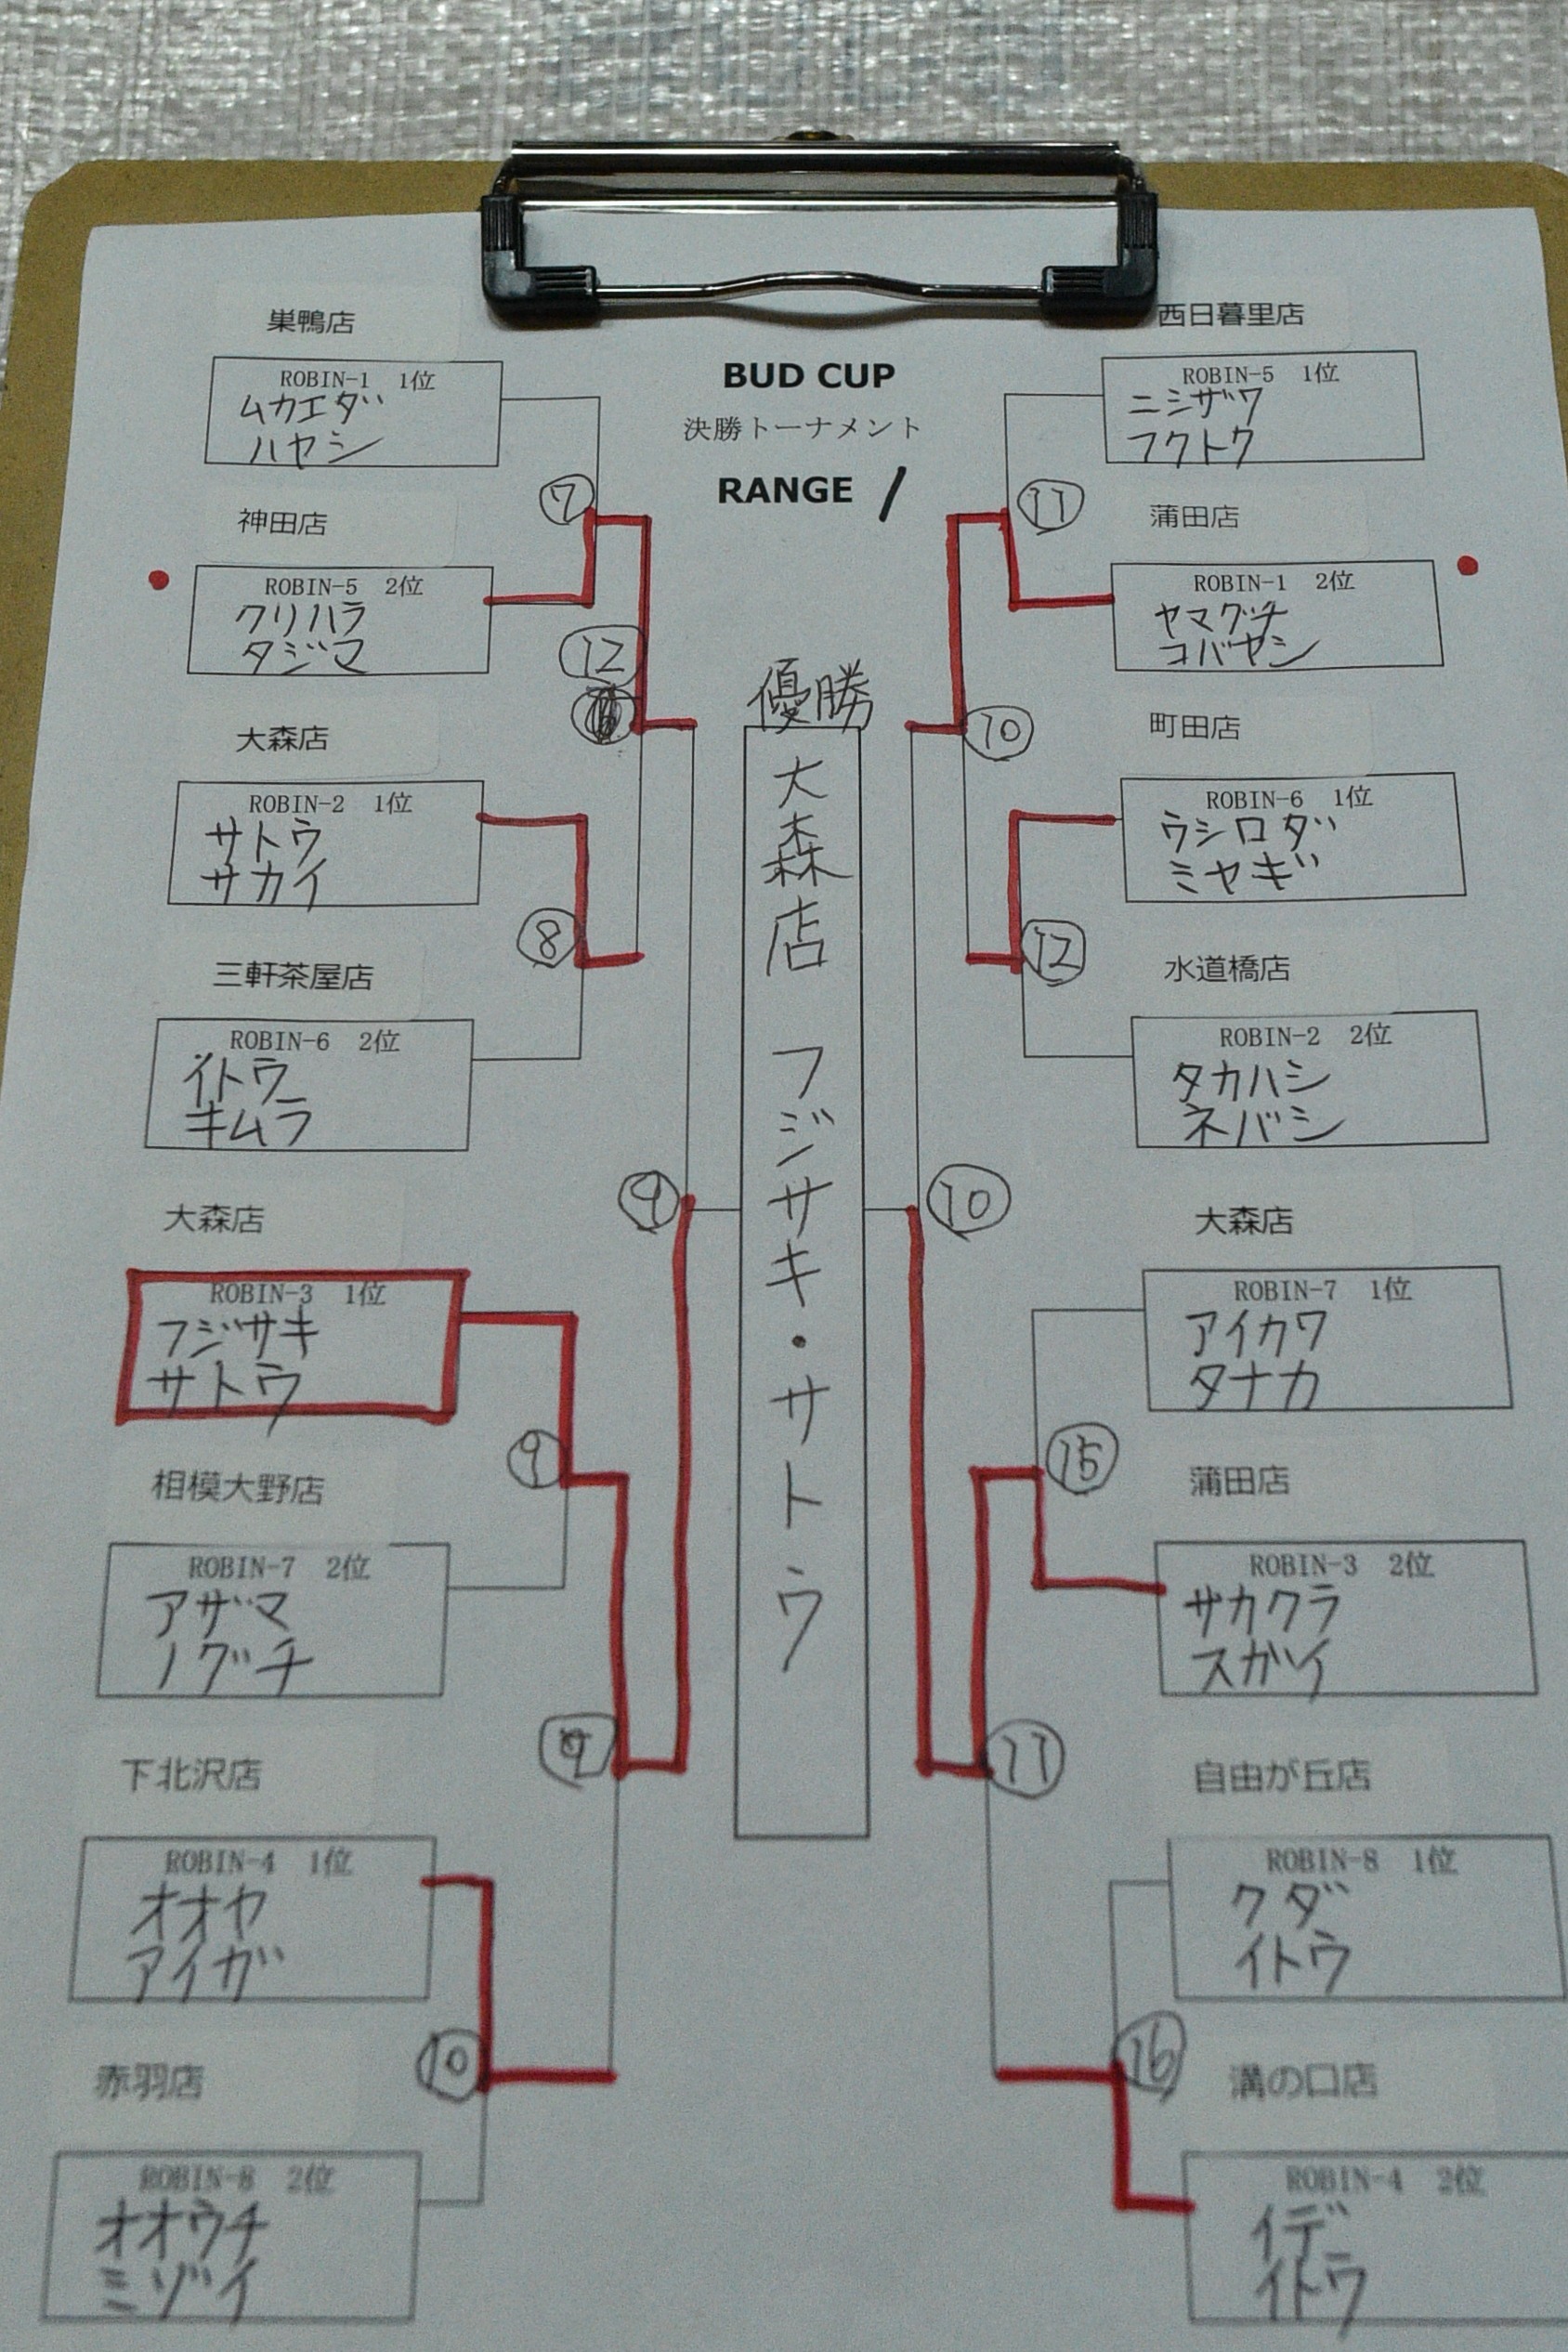 BUD CUP
決勝トーナメント
RANGE 1
巣鴨店
ROBIN-1 1位
ムカエダ
ハヤシ
⑦
神田店
ROBIN-5 2位
クリハラ
タジマ
⑫
大森店
ROBIN-2 1位
サトウ
サカイ
⑧
三軒茶屋店
ROBIN-6 2位
イトウ
キムラ
⑨
大森店
ROBIN-3 1位
フジサキ
サトウ
⑨
相模大野店
ROBIN-7 2位
アザマ
ノグチ
下北沢店
ROBIN-4 1位
オオヤ
アイガ
⑩
赤羽店
ROBIN-8 2位
オオウチ
ミゾイ
優勝
大森店 フジサキ・サトウ
西日暮里店
ROBIN-5 1位
ニシザワ
フクトク
⑪
蒲田店
ROBIN-1 2位
ヤマグチ
コバヤシ
⑩
町田店
ROBIN-6 1位
ウシロダ
ミヤギ
⑫
水道橋店
ROBIN-2 2位
タカハシ
ネバシ
⑩
大森店
ROBIN-7 1位
アイカワ
タナカ
⑮
蒲田店
ROBIN-3 2位
サカクラ
⑪
自由が丘店
ROBIN-8 1位
クダ
イトウ
⑯
溝の口店
ROBIN-4 2位
イデ
イトウ